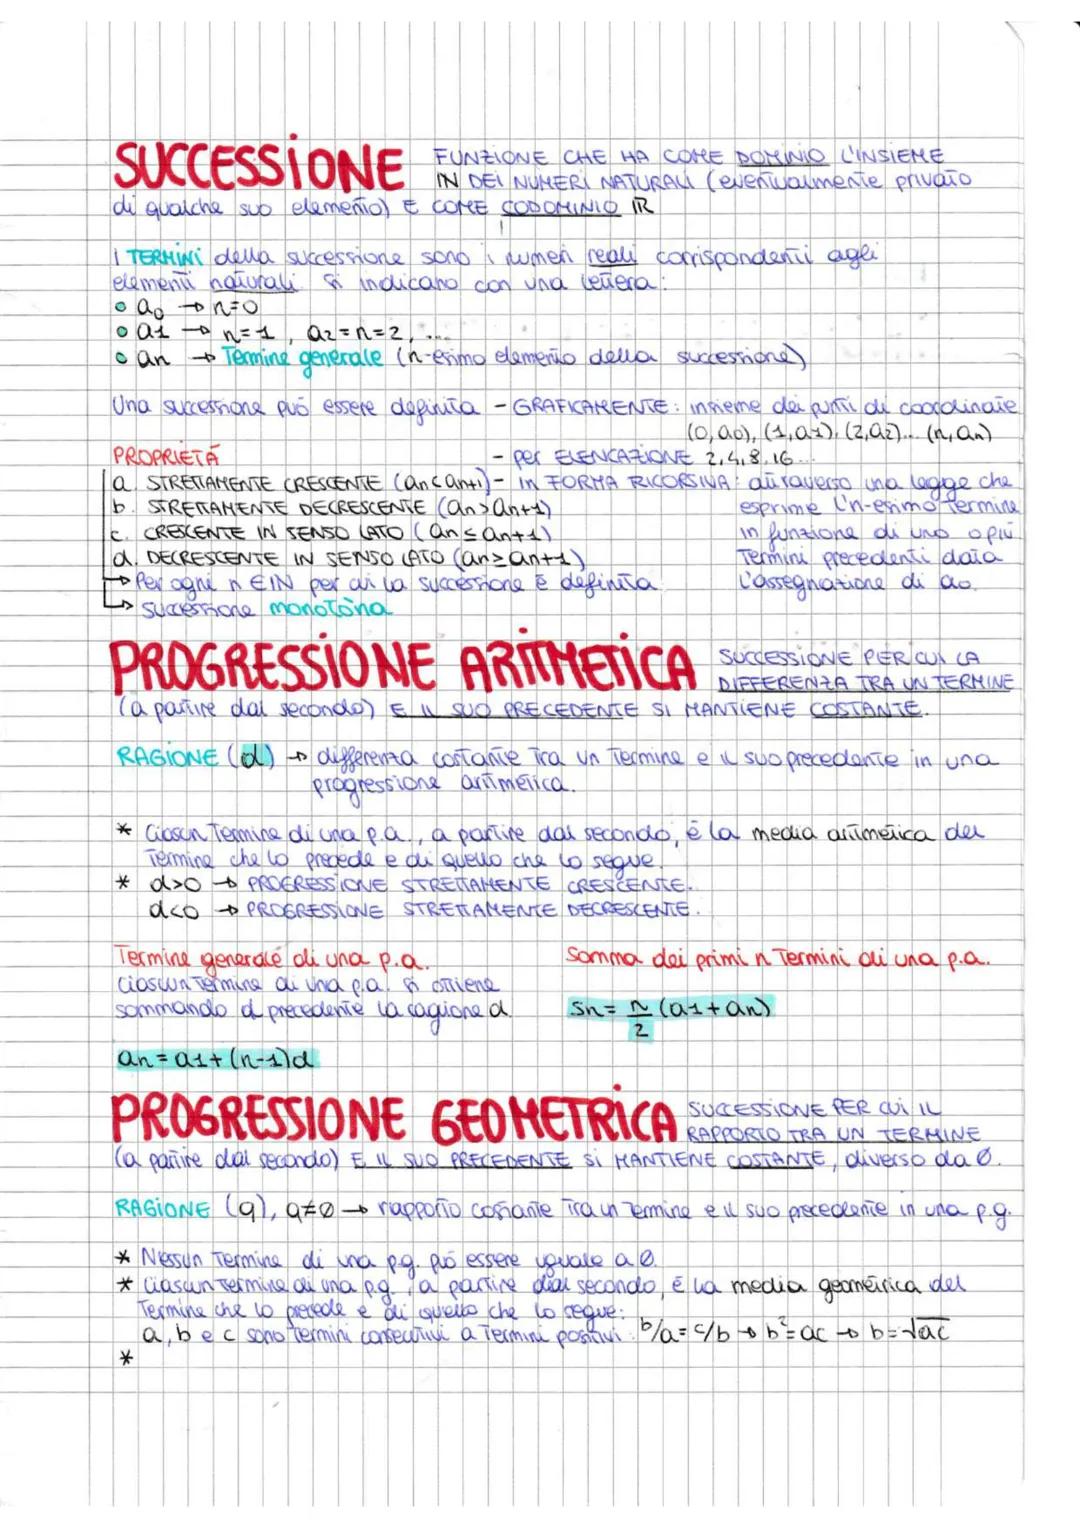 SUCCESSIONE FUNZIONE CHE HA COME DOMINIO L'INSIEME
IN DEI NUMERI NATURALI (eventualmente privato
di qualche suo elemento) E COME CODOMINIO IR
I TERMINI della successione sono i numeri reali corrispondenti agli
elementi naturali. Si indicano con una lettera:
a0 → n=0
a1 → n=1, a2=n=2, ...
an → Termine generale (n-esimo elemento della successione)
Una successione può essere definita - GRAFICAMENTE: insieme dei punti di coordinate
(0,a0), (1,a1), (2,a2)... (n,an)
PROPRIETÀ - per ELENCAZIONE 2,4,8,16...
a. STRETTAMENTE CRESCENTE (an<an+1) - in FORMA RICORSIVA: attraverso una legge che
b. STRETTAMENTE DECRESCENTE (an>an+1) esprime l'n-esimo termine
c. CRESCENTE IN SENSO LATO (an≤an+1) in funzione di uno o più
d. DECRESCENTE IN SENSO LATO (an≥an+1) Termini precedenti data
→ Per ogni n EIN per cui la successione è definita l'assegnazione di a0.
→ successione monotòna
PROGRESSIONE ARITMETICA SUCCESSIONE PER CUI LA
DIFFERENZA TRA UN TERMINE
(a partire dal secondo) E IL SUO PRECEDENTE SI MANTIENE COSTANTE.
RAGIONE (d) → differenza costante tra un Termine e il suo precedente in una
progressione aritmetica.
* Ciascun Termine di una p.a., a partire dal secondo, è la media aritmetica del
Termine che lo precede e di quello che lo segue.
* d>0 → PROGRESSIONE STRETTAMENTE CRESCENTE.
d<0 → PROGRESSIONE STRETTAMENTE DECRESCENTE.
Termine generale di una p.a. Somma dei primi n Termini di una p.a.
Ciascun Termine di una p.a. si ottiene
sommando al precedente la ragione d. Sn = n/2 (a1+an)
an = a1+(n-1)d
PROGRESSIONE GEOMETRICA SUCCESSIONE PER CUI IL
RAPPORTO TRA UN TERMINE
(a partire dal secondo) E IL SUO PRECEDENTE SI MANTIENE COSTANTE, diverso da 0.
RAGIONE (q), q≠0 → rapporto costante tra un Termine e il suo precedente in una p.g.
* Nessun Termine di una p.g. può essere uguale a 0.
* Ciascun Termine di una p.g., a partire dal secondo, è la media geometrica del
Termine che lo precede e di quello che lo segue:
a, b e c sono Termini consecutivi a Termini positivi: b/a = c/b → b²=ac → b=√ac
*